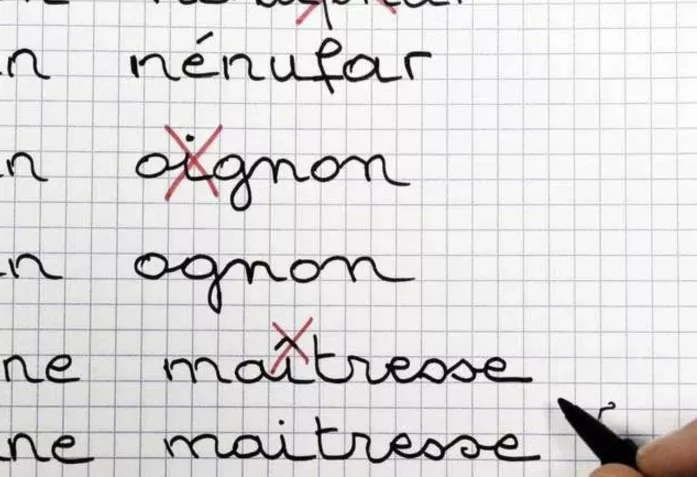 nénufar
oignon
ognon
maîtresse
maitresse